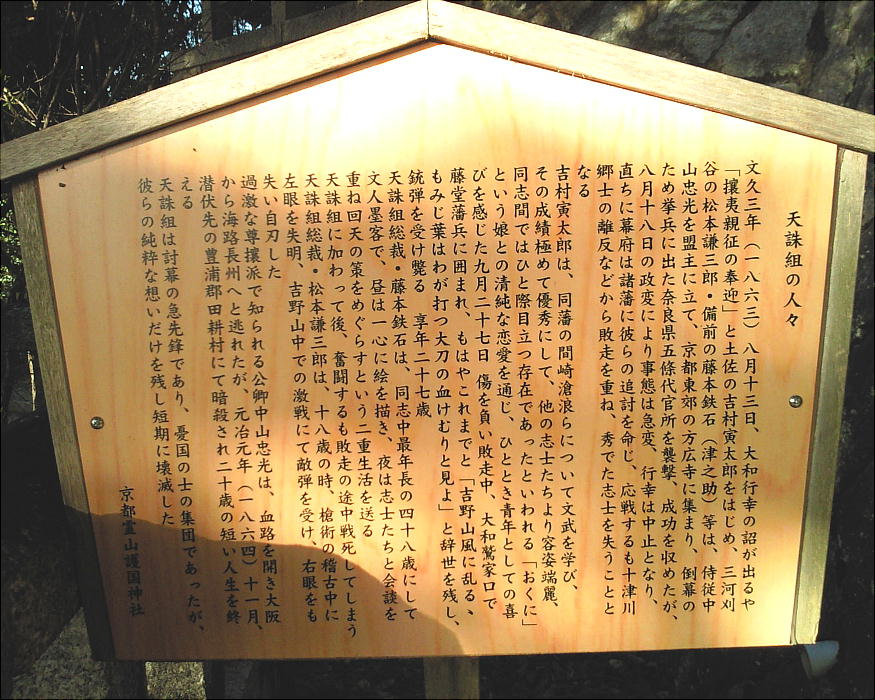 天誅組の人々
文久三年（一八六三）八月十三日、大和行幸の詔が出るや
「攘夷親征の奉迎」と土佐の吉村寅太郎をはじめ、三河刈
谷の松本謙三郎・備前の藤本鉄石（津之助）等は、侍従中
山忠光を盟主に立て、京都東郊の方広寺に集まり、倒幕の
ため挙兵に出た奈良県五條代官所を襲撃、成功を収めたが、
八月十八日の政変により事態は急変、行幸は中止となり、
直ちに幕府は諸藩に彼らの追討を命じ、応戦するも十津川
郷士の離反などから敗走を重ね、秀でた志士を失うことと
なる
吉村寅太郎は、同藩の間崎滄浪らについて文武を学び、
その成績極めて優秀にして、他の志士たちより容姿端麗、
同志間ではひと際目立つ存在であったといわれる「おくに」
という娘との清純な恋愛を通じ、ひととき青年としての喜
びを感じた九月二十七日 傷を負い敗走中、大和鷲家口で
藤堂藩兵に囲まれ、もはやこれまでと「吉野山風に乱るゝ
もみじ葉はわが打つ大刀の血けむりと見よ」と辞世を残し、
銃弾を受け斃る 享年二十七歳
天誅組総裁・藤本鉄石は、同志中最年長の四十八歳にして
文人墨客で、昼は一心に絵を描き、夜は志士たちと会談を
重ね回天の策をめぐらすという二重生活を送る
天誅組に加わって後、奮闘するも敗走の途中戦死してしまう
天誅組総裁・松本謙三郎は、十八歳の時、槍術の稽古中に
左眼を失明、吉野山中での激戦にて敵弾を受け、右眼をも
失い自刃した
過激な尊攘派で知られる公卿中山忠光は、血路を開き大阪
から海路長州へと逃れたが、元治元年（一八六四）十一月、
潜伏先の豊浦郡田耕村にて暗殺され二十歳の短い人生を終
える
天誅組は討幕の急先鋒であり、憂国の士の集団であったが、
彼らの純粋な想いだけを残し短期に壊滅した
京都霊山護国神社